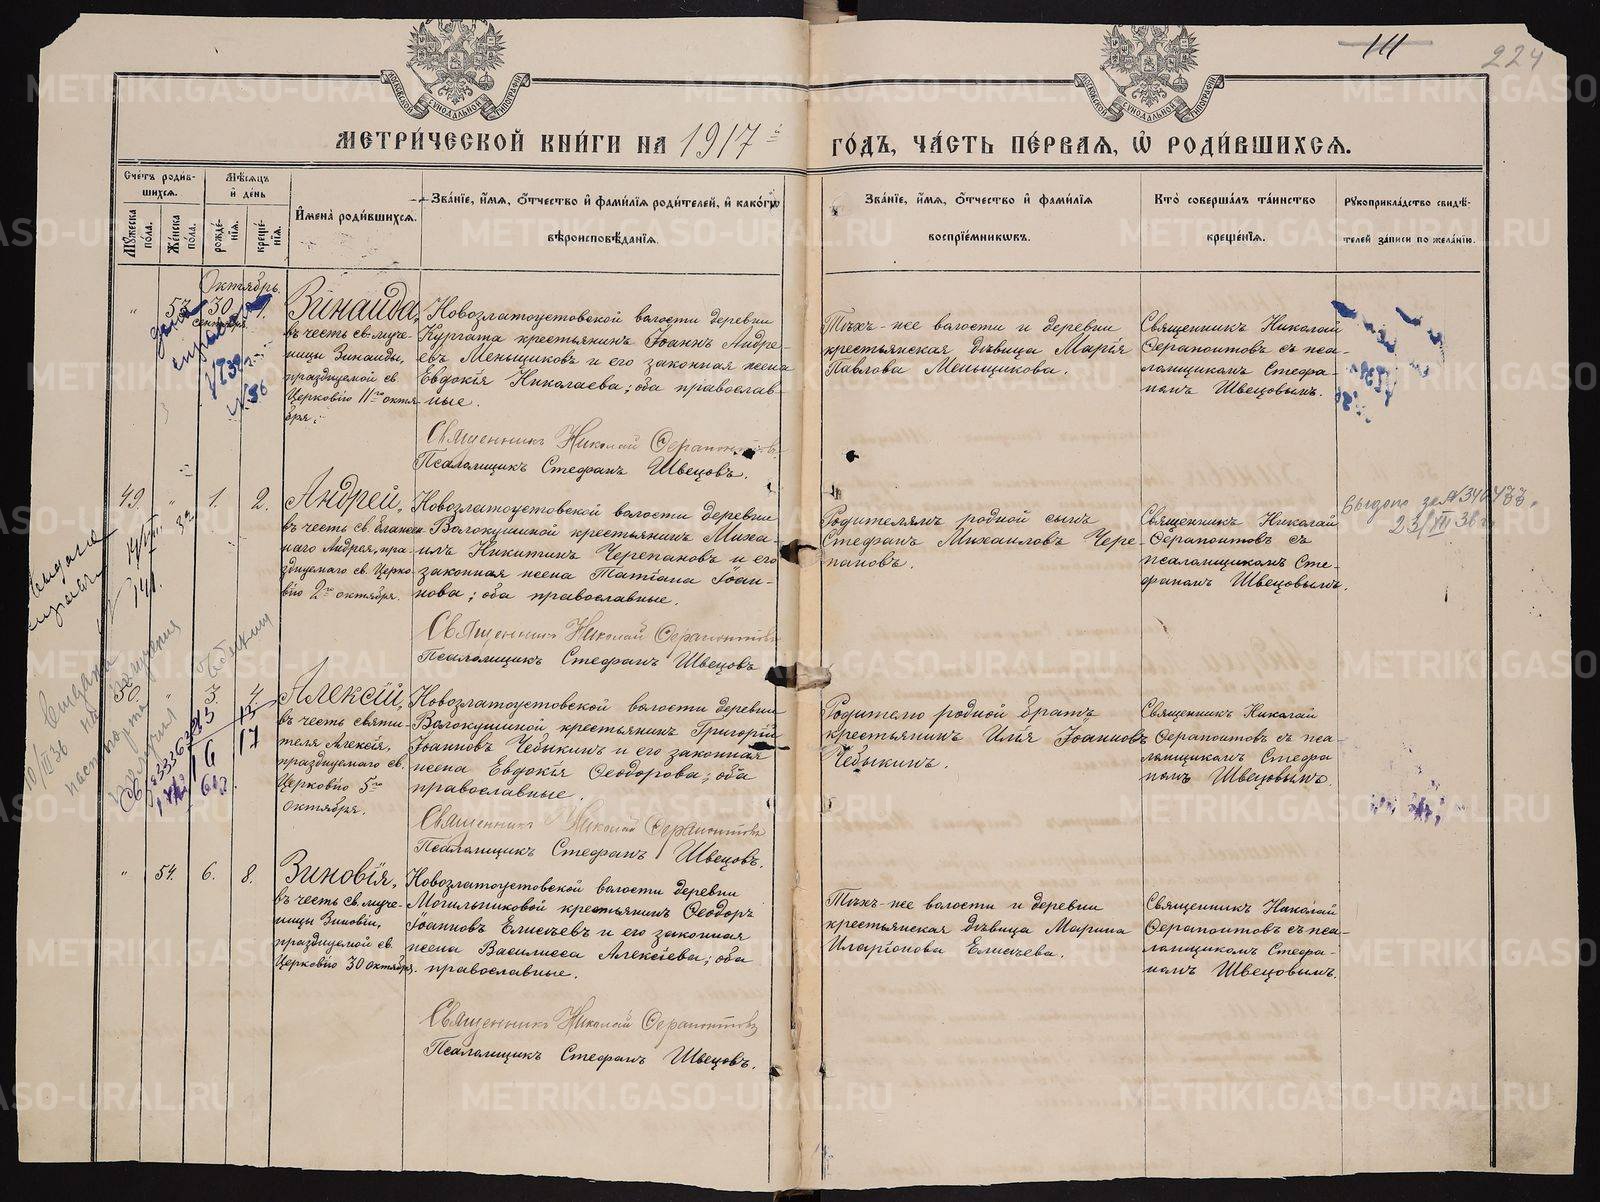 111
224
МОСКОВСКОЙ СѴНОДАЛЬНОЙ ТИПОГРАФІИ
МОСКОВСКОЙ СѴНОДАЛЬНОЙ ТИПОГРАФІИ
МЕТРИ́ЧЕСКОЙ КНИ́ГИ НА 1917й
ГО́ДЪ, ЧА́СТЬ ПЕ́РВАЯ, Ѽ РОДИ́ВШИХСЯ.
Сче́тъ роди́в-
шихся.
Мꙋжеска по́ла.
Же́нска по́ла.
Мѣ́сяцъ
и де́нь
рожде́нія.
креще́нія.
И҆мена̀ роди́вшихся.
Зва́ніе, и҆́мя, ѻ҆́тчество и҆ фами́лія роди́телей, и҆ како́гѡ
вѣроисповѣ́данія.
Зва́ніе, и҆́мя, ѻ҆́тчество и҆ фами́лія
воспріе́мниковъ.
Кто̀ соверша́лъ та́инство
креще́нія.
Рꙋкоприкла́дство свидѣ́-
телей за́писи по жела́нію.
Октябрь.
„ 53 30 1.
сентября
Зинаида,
въ честь св. муче-
ницы Зинаиды,
празднуемой св.
Церковію 11го октя-
бря.
Новозлатоустовской волости деревни
Кургата крестьянинъ Іоаннъ Андре-
евъ Меньщиковъ и его законная жена
Евдокія Николаева; оба православ-
ные.
Священникъ Николай Серапонтовъ
Псаломщикъ Стефанъ Швецовъ.
Тѣхъ-же волости и деревни
крестьянская дѣвица Марія
Павлова Меньщикова.
Священникъ Николай
Серапонтовъ съ пса-
ломщикомъ Стефа-
номъ Швецовымъ.
49. „ 1. 2.
Андрей,
въ честь св. блажен-
наго Андрея, пра-
зднуемаго св. Церко-
вію 2го октября.
Новозлатоустовской волости деревни
Волокушиной крестьянинъ Миха-
илъ Никитинъ Черепановъ и его
законная жена Татіана Іоан-
нова; оба православные.
Священникъ Николай Серапонтовъ
Псаломщикъ Стефанъ Швецовъ
Родителямъ родной сынъ
Стефанъ Михаиловъ Чере-
пановъ.
Священникъ Николай
Серапонтовъ съ
псаломщикомъ Сте-
фаномъ Швецовымъ.
Выдано за № 340477
23/XII 38 г.
50. „ 3. 4
Алексій,
въ честь святи-
теля Алексія,
празднуемаго св.
Церковію 5го
октября.
Новозлатоустовской волости деревни
Волокушиной крестьянинъ Григорій
Іоанновъ Чебыкинъ и его законная
жена Евдокія Ѳеодорова; оба
православные.
Священникъ Николай Серапонтовъ
Псаломщикъ Стефанъ Швецовъ.
Родителю родной братъ
крестьянинъ Илія Іоанновъ
Чебыкинъ.
Священникъ Николай
Серапонтовъ съ пса-
ломщикомъ Стефа-
номъ Швецовымъ.
„ 54. 6. 8.
Зиновія,
въ честь св. муче-
ницы Зиновіи,
празднуемой св.
Церковію 30 октября.
Новозлатоустовской волости деревни
Могильниковой крестьянинъ Ѳеодоръ
Іоанновъ Елисѣевъ и его законная
жена Василисса Алексіева; оба
православные.
Священникъ Николай Серапонтовъ
Псаломщикъ Стефанъ Швецовъ.
Тѣхъ-же волости и деревни
крестьянская дѣвица Марина
Иларіонова Елисѣева.
Священникъ Николай
Серапонтовъ съ пса-
ломщикомъ Стефа-
номъ Швецовымъ.
METRIKI.GASO-URAL.RU